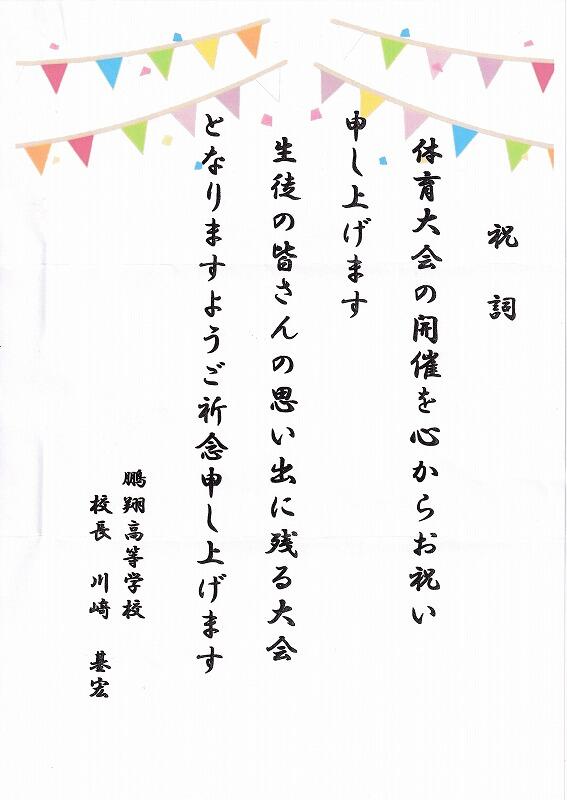 祝詞
体育大会の開催を心からお祝い
申し上げます
生徒の皆さんの思い出に残る大会
となりますようご祈念申し上げます
鵬翔高等学校
校長 川﨑 基宏